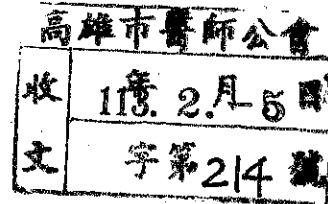 高雄市醫師公會
收 113年2月5日
文 字第214號